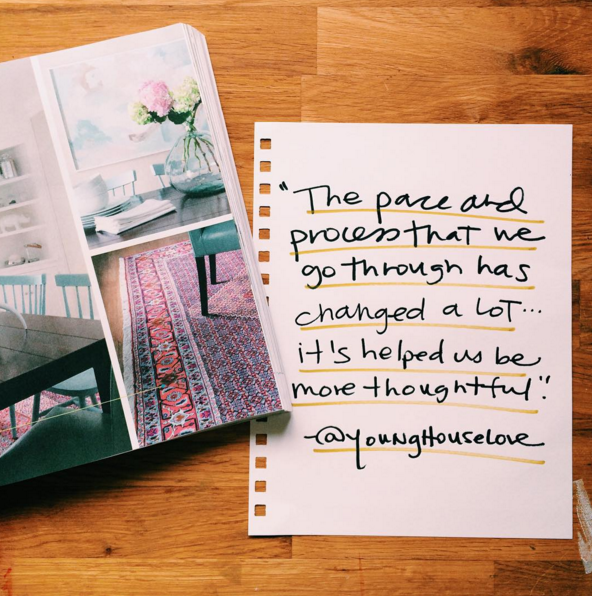 "The pace and
process that we
go through has
changed a lot...
it's helped us be
more thoughtful".
-@YOUNGHOUSELOVE